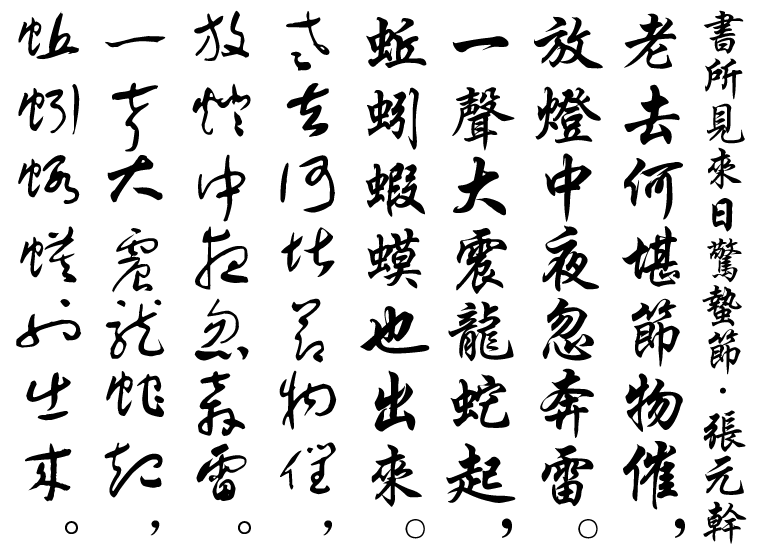 書所見來日驚蟄節·張元幹
老去何堪節物催，
放燈中夜忽奔雷。
一聲大震龍蛇起，
蚯蚓蝦蟆也出來。
老去何堪節物催，
放燈中夜忽奔雷。
一聲大震龍蛇起，
蚯蚓蝦蟆也出來。